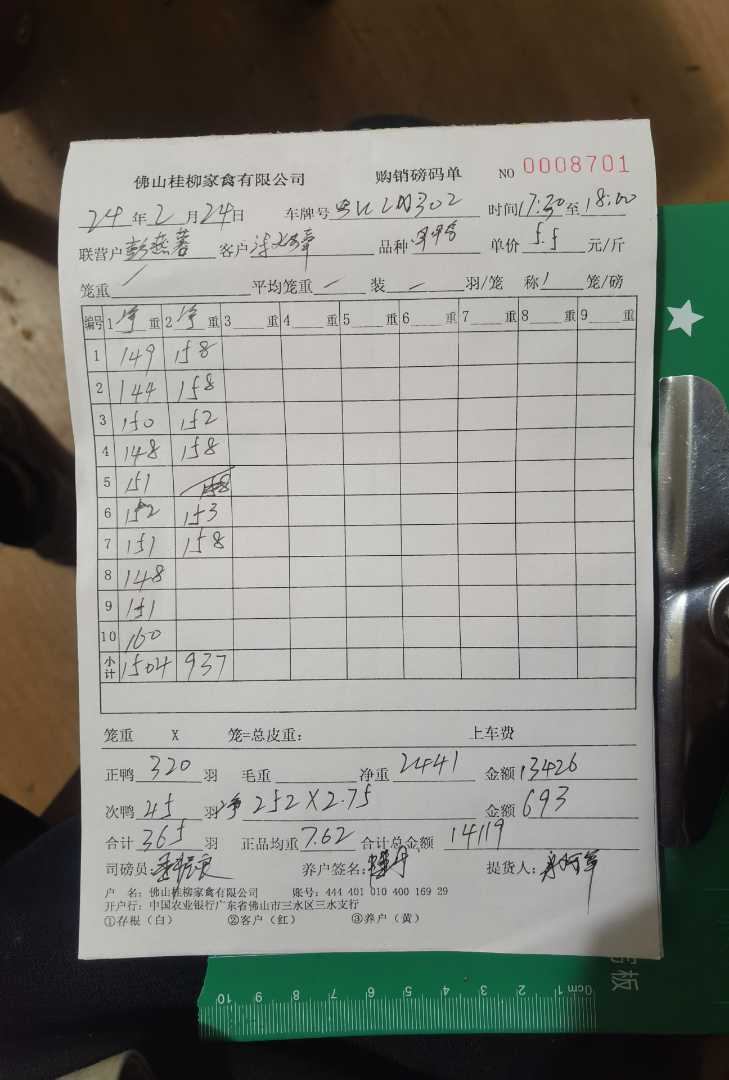 佛山桂柳家禽有限公司 购销磅码单 NO 0008701
24年2月24日 车牌号 时间17:30至18:00
联营户 客户 品种 单价5.5元/斤
笼重 平均笼重 装 羽/笼 称1笼/磅
编号 1净重 2净重 3重 4重 5重 6重 7重 8重 9重
1 149 158
2 144 158
3 150 152
4 148 158
5 151
6 152 153
7 151 158
8 148
9 151
10 160
小计 1504 937
笼重 X 笼=总皮重: 上车费
正鸭320羽 毛重 净重2441 金额13426
次鸭45羽 净252X2.75 金额693
合计365羽 正品均重7.62 合计总金额14119
司磅员: 养户签名: 提货人:
户 名: 佛山桂柳家禽有限公司 账号: 444 401 010 400 169 29
开户行: 中国农业银行广东省佛山市三水区三水支行
①存根（白） ②客户（红） ③养户（黄）
0cm 1 2 3 4 5 6 7 8 9 10